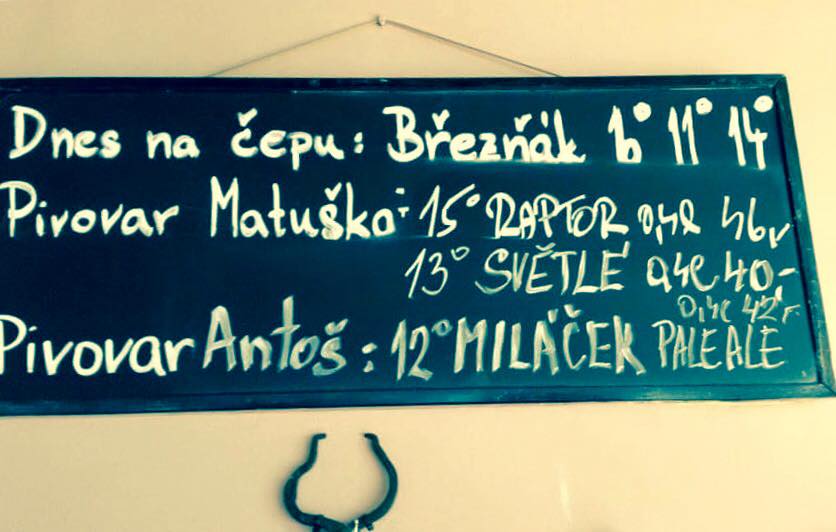 Dnes na čepu: Březňák 10° 11° 14°
Pivovar Matuška: 15° RAPTOR 0,4l 46,-
13° SVĚTLÉ 0,4l 40,-
0,4l 42,-
Pivovar Antoš: 12° MILÁČEK PALE ALE